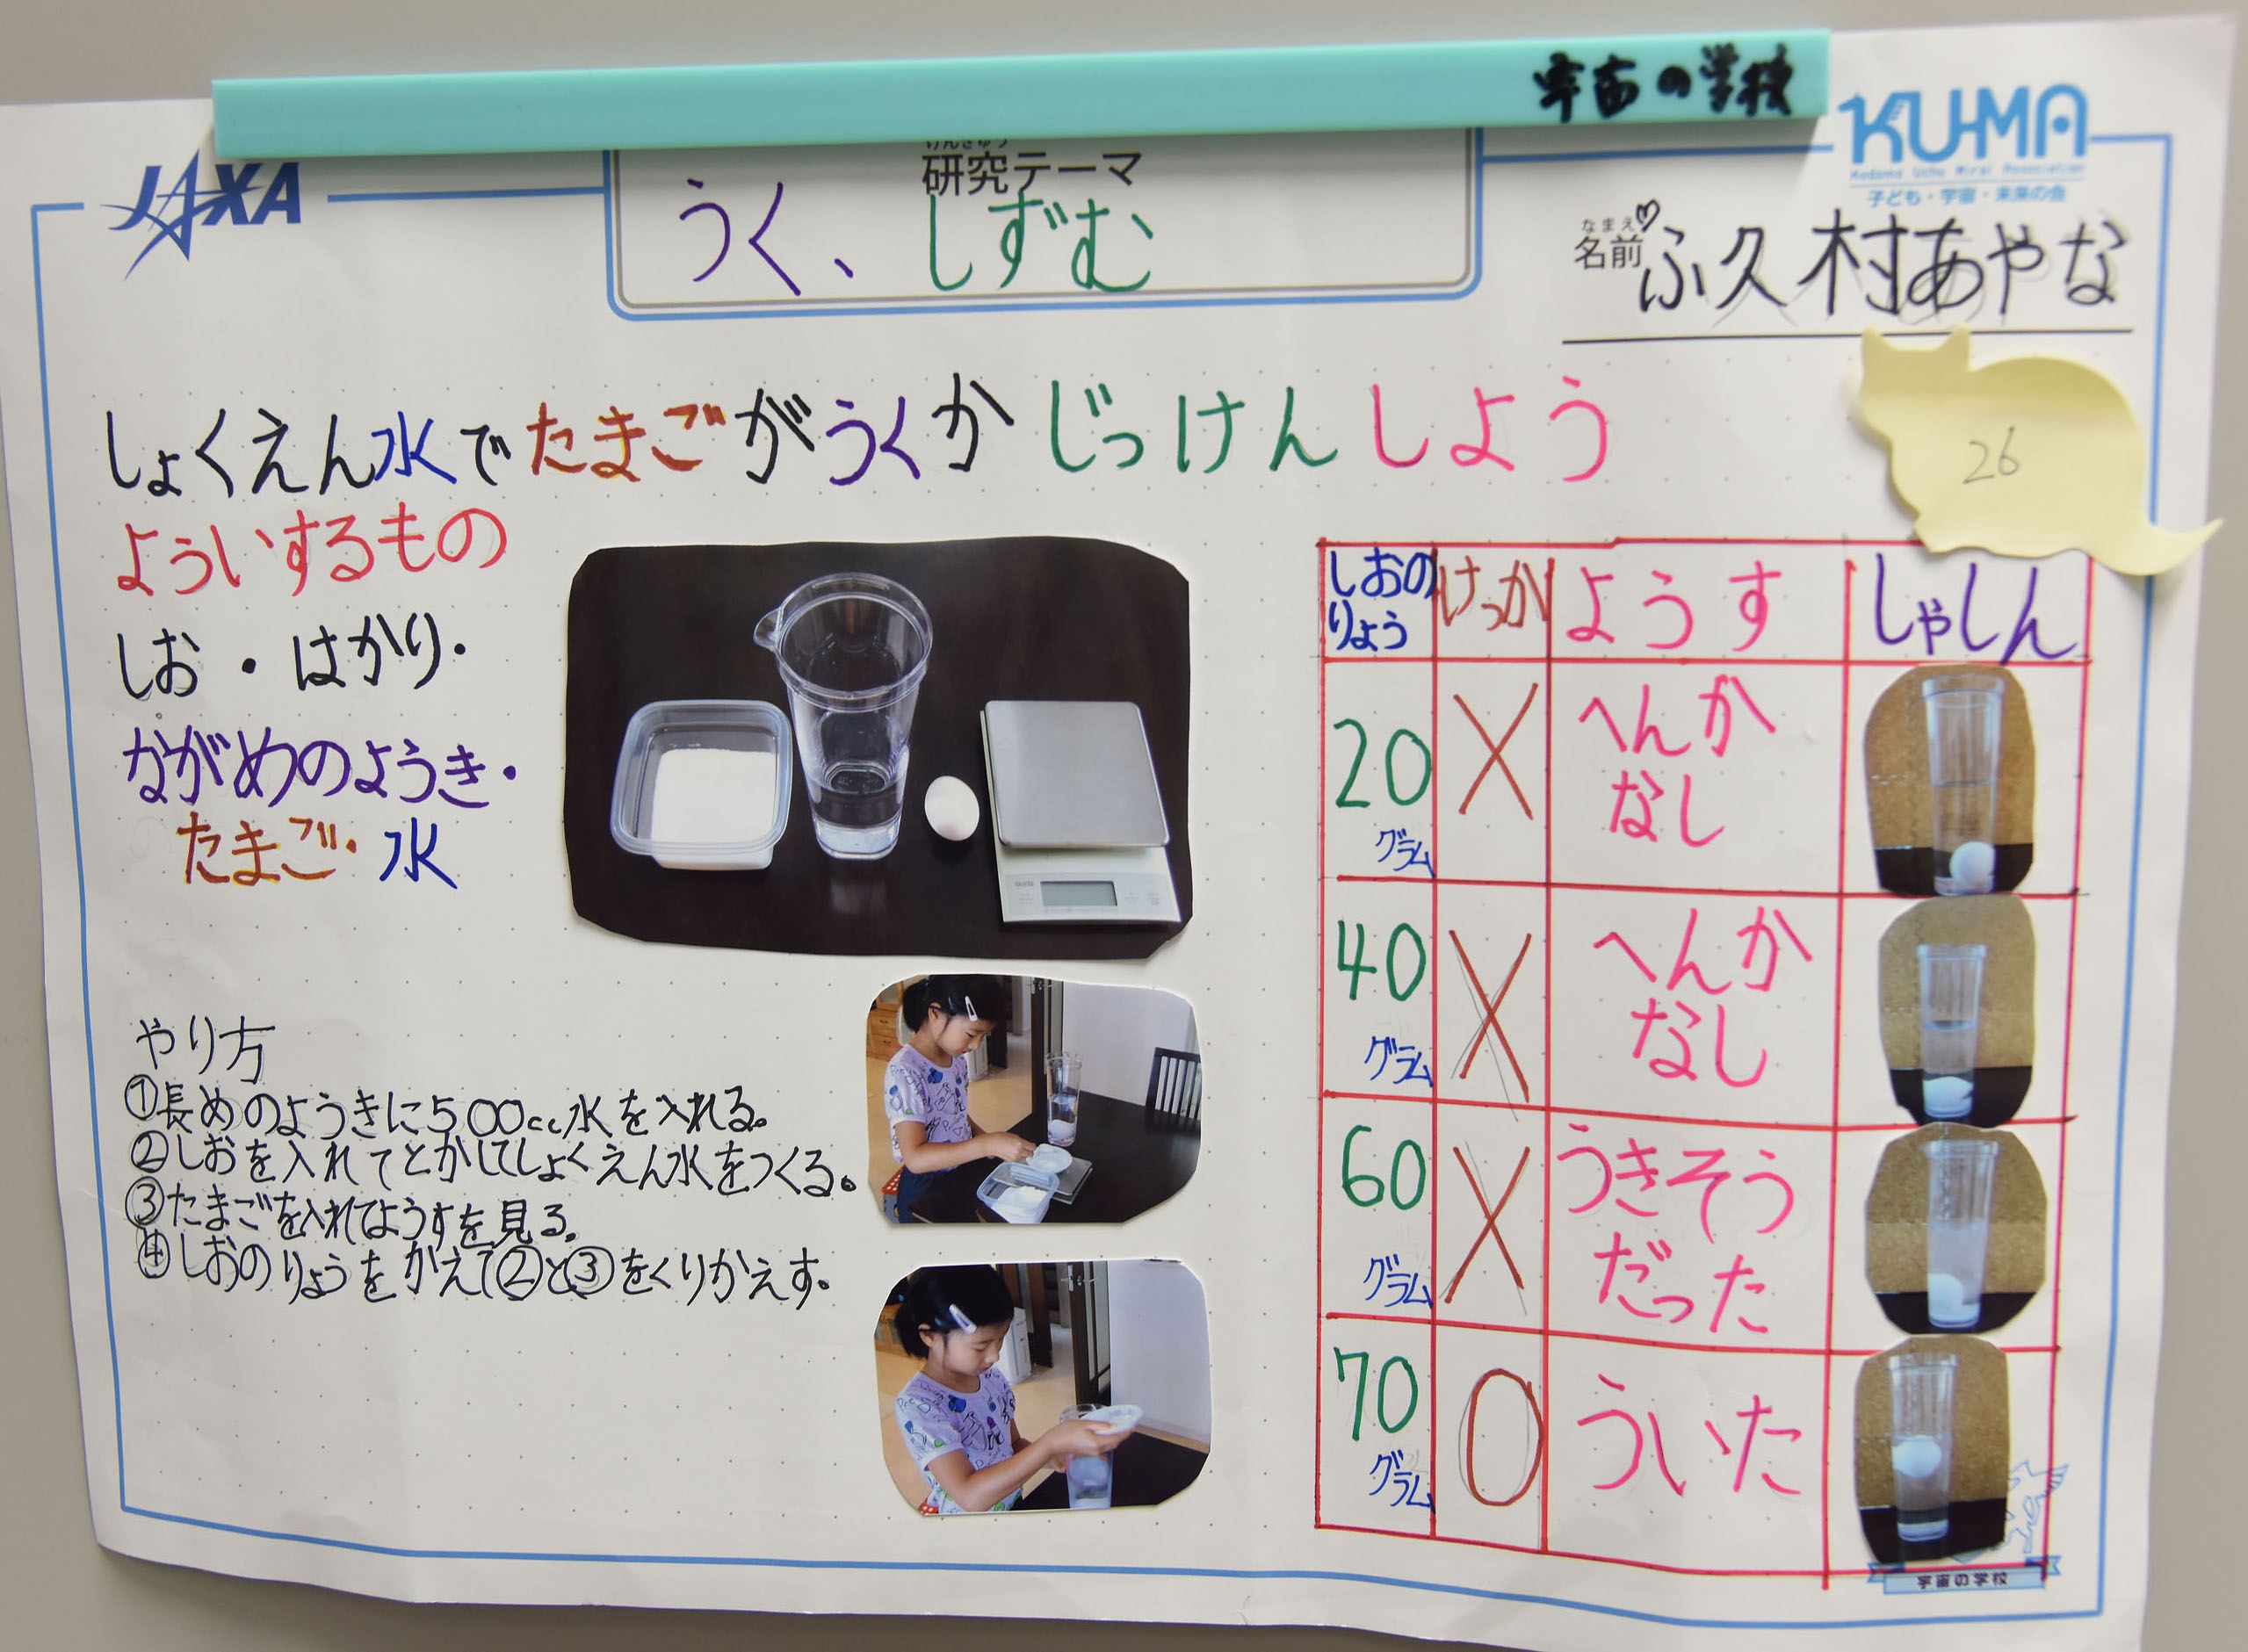 宇宙の学校
JAXA
KUMA
Kodomo Uchu Mirai Association
子ども・宇宙・未来の会
けんきゅう
研究テーマ
うく、しずむ
なまえ
名前 ふ久村あやな
26
しょくえん水でたまごがうくかじっけんしよう
よういするもの
しお・はかり・
ながめのようき・
たまご・水
やり方
①長めのようきに500cc水を入れる。
②しおを入れてとかしてしょくえん水をつくる。
③たまごを入れてようすを見る。
④しおのりょうをかえて②と③をくりかえす。
しおのりょう けっか ようす しゃしん
20グラム × へんかなし
40グラム × へんかなし
60グラム × うきそうだった
70グラム ○ ういた
宇宙の学校